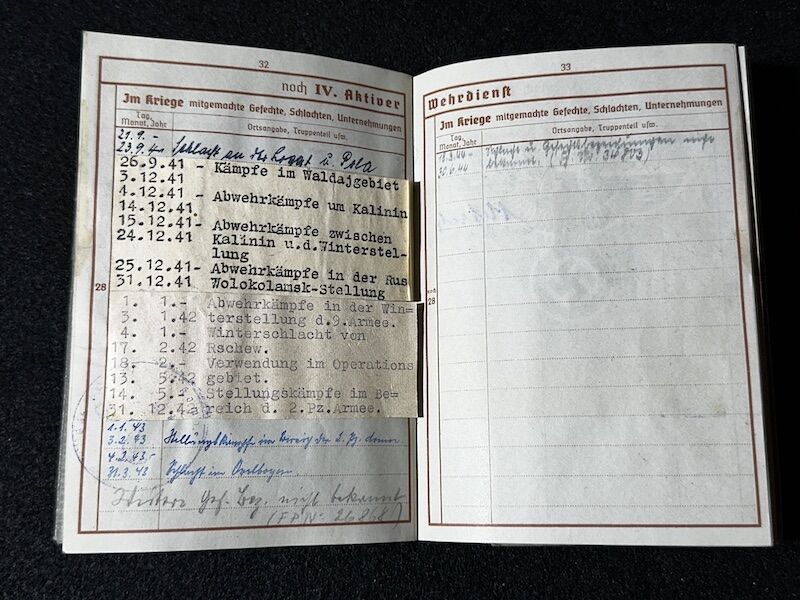 32
noch IV. Aktiver
Im Kriege mitgemachte Gefechte, Schlachten, Unternehmungen
Tag, Monat, Jahr
Ortsangabe, Truppenteil usw.
21.9.-
23.9.41 Schlacht an der Lowat u. Pola
26.9.41 - Kämpfe im Waldajgebiet
3.12.41
4.12.41 - Abwehrkämpfe um Kalinin
14.12.41
15.12.41 - Abwehrkämpfe zwischen
24.12.41 Kalinin u.d.Winterstel-
lung
25.12.41- Abwehrkämpfe in der Rus
31.12.41 Wolokolamsk-Stellung
28
1. 1.- Abwehrkämpfe in der Win=
3. 1.42 terstellung d.9.Armee.
4. 1.- Winterschlacht von
17. 2.42 Rschew.
18. 2.- Verwendung im Operations
13. 5.42 gebiet.
14. 5.- Stellungskämpfe im Be=
31. 12.42 reich d. 2.Pz.Armee.
1.1.43
3.2.43 Stellungskämpfe im Bereich der 2. Pz. Armee
4.2.43.-
31.3.43 Schlacht im Orelbogen.
Weitere Gef. Bez. nicht bekannt
(FPNr. 26868)
33
Wehrdienst
Im Kriege mitgemachte Gefechte, Schlachten, Unternehmungen
Tag, Monat, Jahr
Ortsangabe, Truppenteil usw.
18.3.44- Schlacht u Gefechtsbezeichnungen nicht
30.6.44 bekannt. (
noch
28